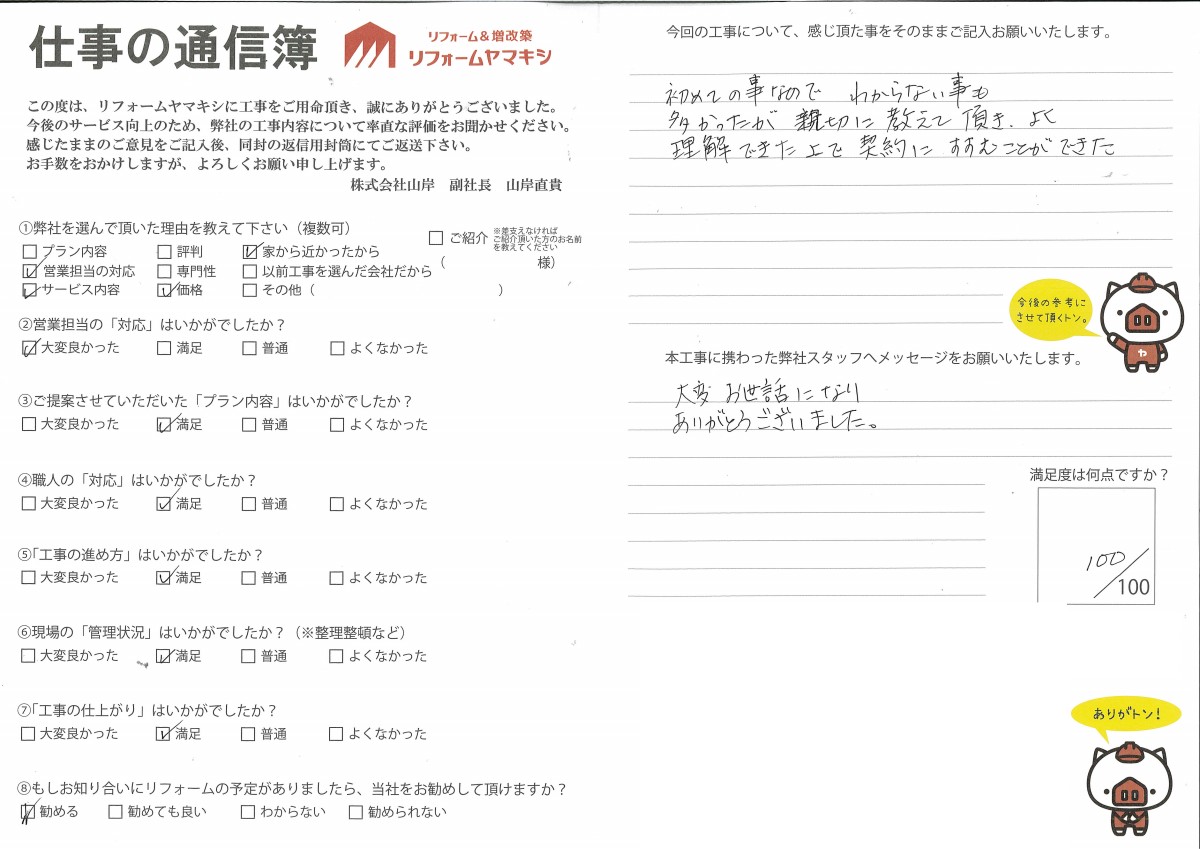 仕事の通信簿
リフォーム&増改築
リフォームヤマキシ
この度は、リフォームヤマキシに工事をご用命頂き、誠にありがとうございました。
今後のサービス向上のため、弊社の工事内容について率直な評価をお聞かせください。
感じたままのご意見をご記入後、同封の返信用封筒にてご返送下さい。
お手数をおかけしますが、よろしくお願い申し上げます。
株式会社山岸 副社長 山岸直貴
①弊社を選んで頂いた理由を教えて下さい（複数可）
プラン内容 評判 家から近かったから
営業担当の対応 専門性 以前工事を選んだ会社だから
サービス内容 価格 その他（ ）
ご紹介 ※差支えなければ
ご紹介頂いた方のお名前
を教えてください
（ 様）
②営業担当の「対応」はいかがでしたか？
大変良かった 満足 普通 よくなかった
③ご提案させていただいた「プラン内容」はいかがでしたか？
大変良かった 満足 普通 よくなかった
④職人の「対応」はいかがでしたか？
大変良かった 満足 普通 よくなかった
⑤「工事の進め方」はいかがでしたか？
大変良かった 満足 普通 よくなかった
⑥現場の「管理状況」はいかがでしたか？（※整理整頓など）
大変良かった 満足 普通 よくなかった
⑦「工事の仕上がり」はいかがでしたか？
大変良かった 満足 普通 よくなかった
⑧もしお知り合いにリフォームの予定がありましたら、当社をお勧めして頂けますか？
勧める 勧めても良い わからない 勧められない
今回の工事について、感じ頂た事をそのままご記入お願いいたします。
初めての事なので わからない事も
多かったが 親切に 教えて 頂き、よく
理解できた上で 契約に すすむことができた
今後の参考に
させて頂くトン。
ヤ
本工事に携わった弊社スタッフへメッセージをお願いいたします。
大変 お世話になり
ありがとうございました。
満足度は何点ですか？
100
/100
ありがトン！